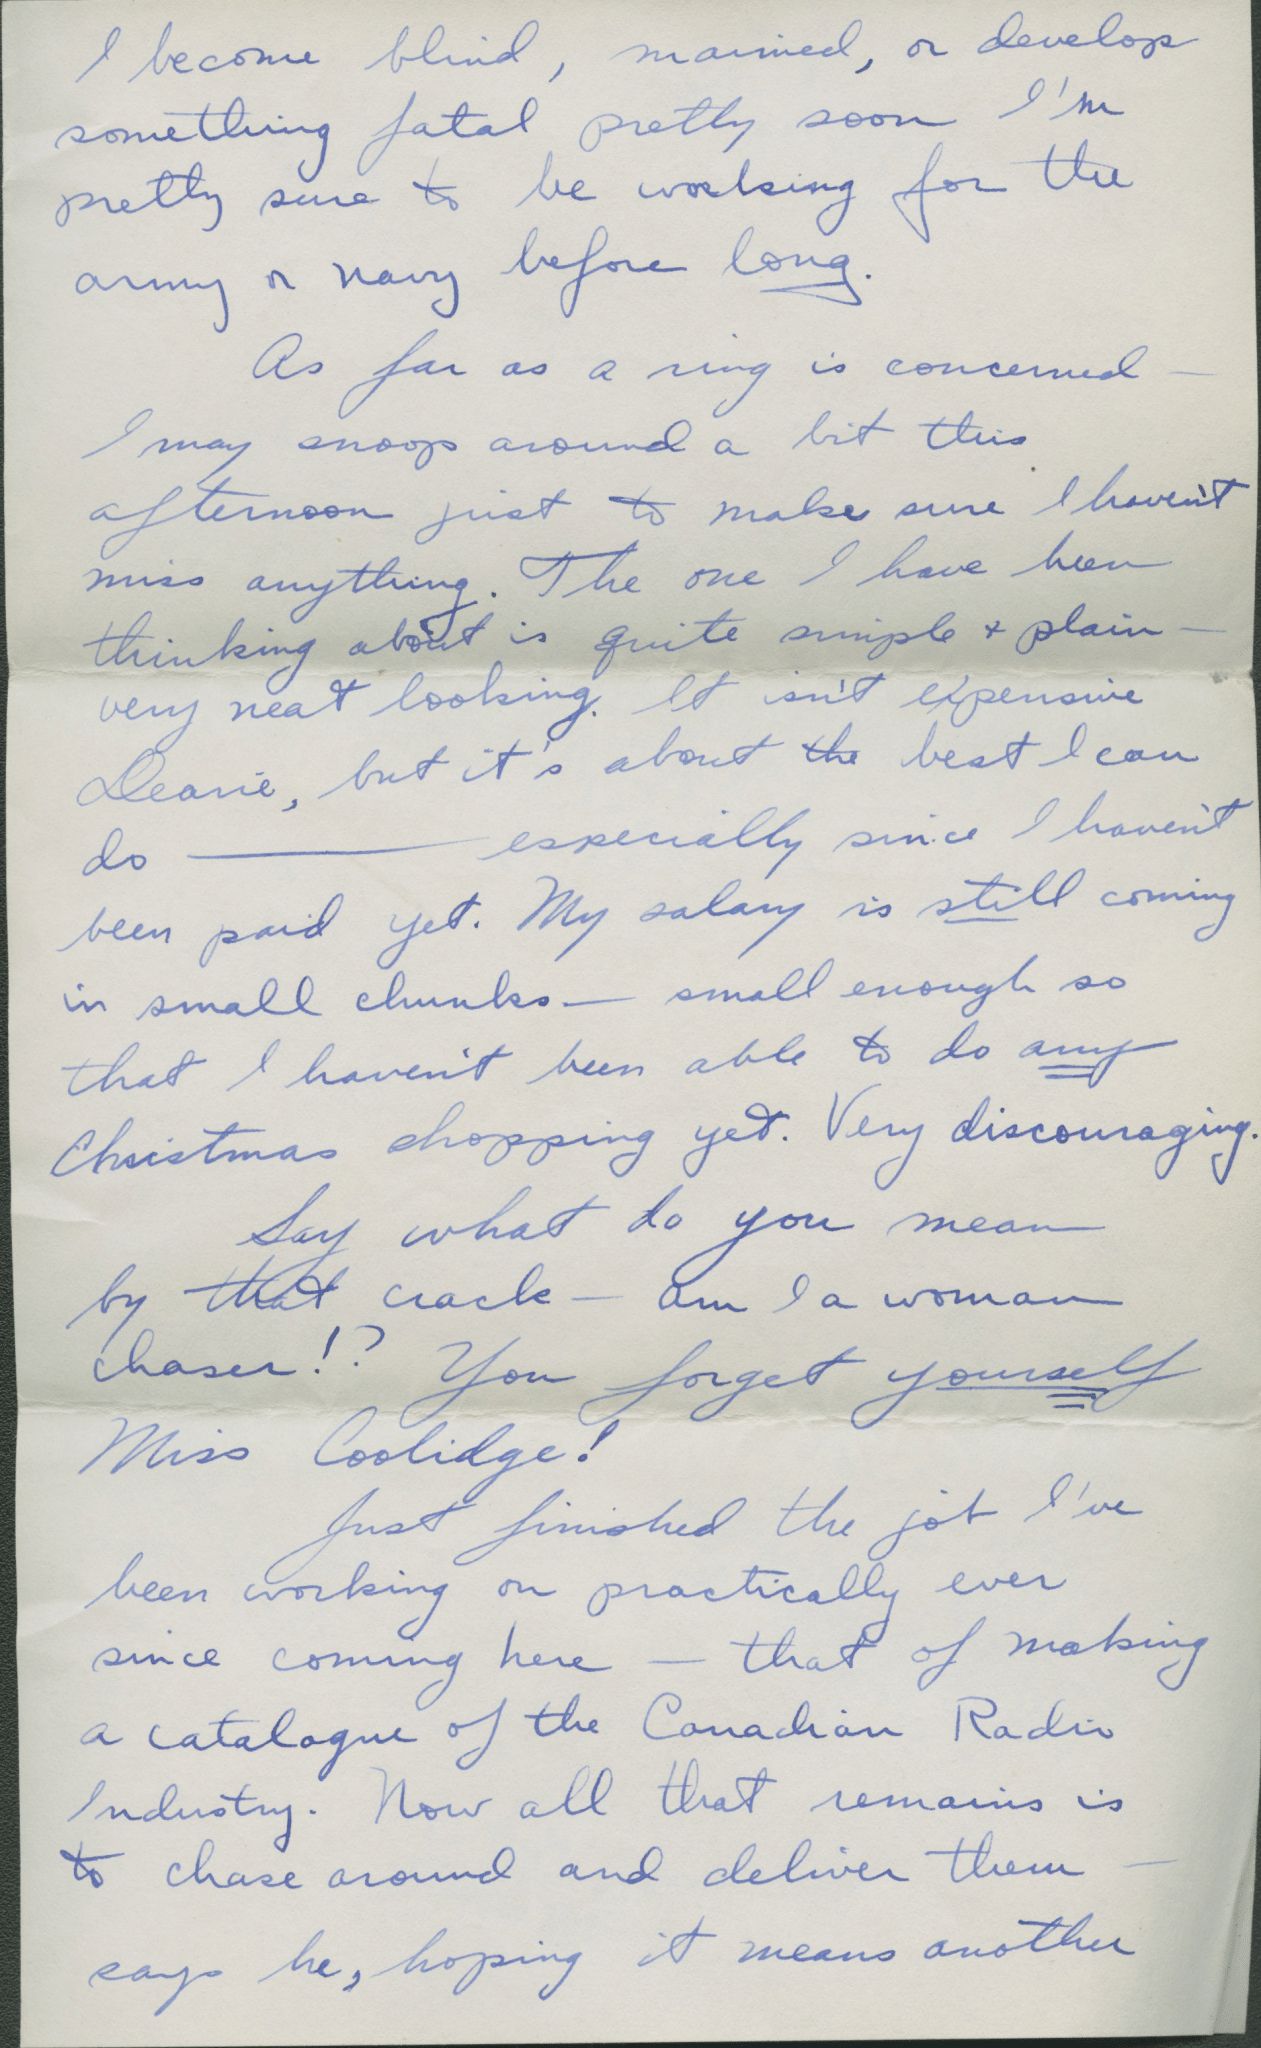 I become blind, maimed, or develop
something fatal pretty soon I'm
pretty sure to be working for the
army or navy before long.
As far as a ring is concerned —
I may snoop around a bit this
afternoon just to make sure I haven't
miss anything. The one I have been
thinking about is quite simple + plain —
very neat looking. It isn't expensive
Dearie, but it's about the best I can
do — especially since I haven't
been paid yet. My salary is still coming
in small chunks — small enough so
that I haven't been able to do any
Christmas shopping yet. Very discouraging.
Say what do you mean
by that crack — am I a woman
chaser!? You forget yourself
Miss Coolidge!
Just finished the job I've
been working on practically ever
since coming here — that of making
a catalogue of the Canadian Radio
Industry. Now all that remains is
to chase around and deliver them —
says he, hoping it means another